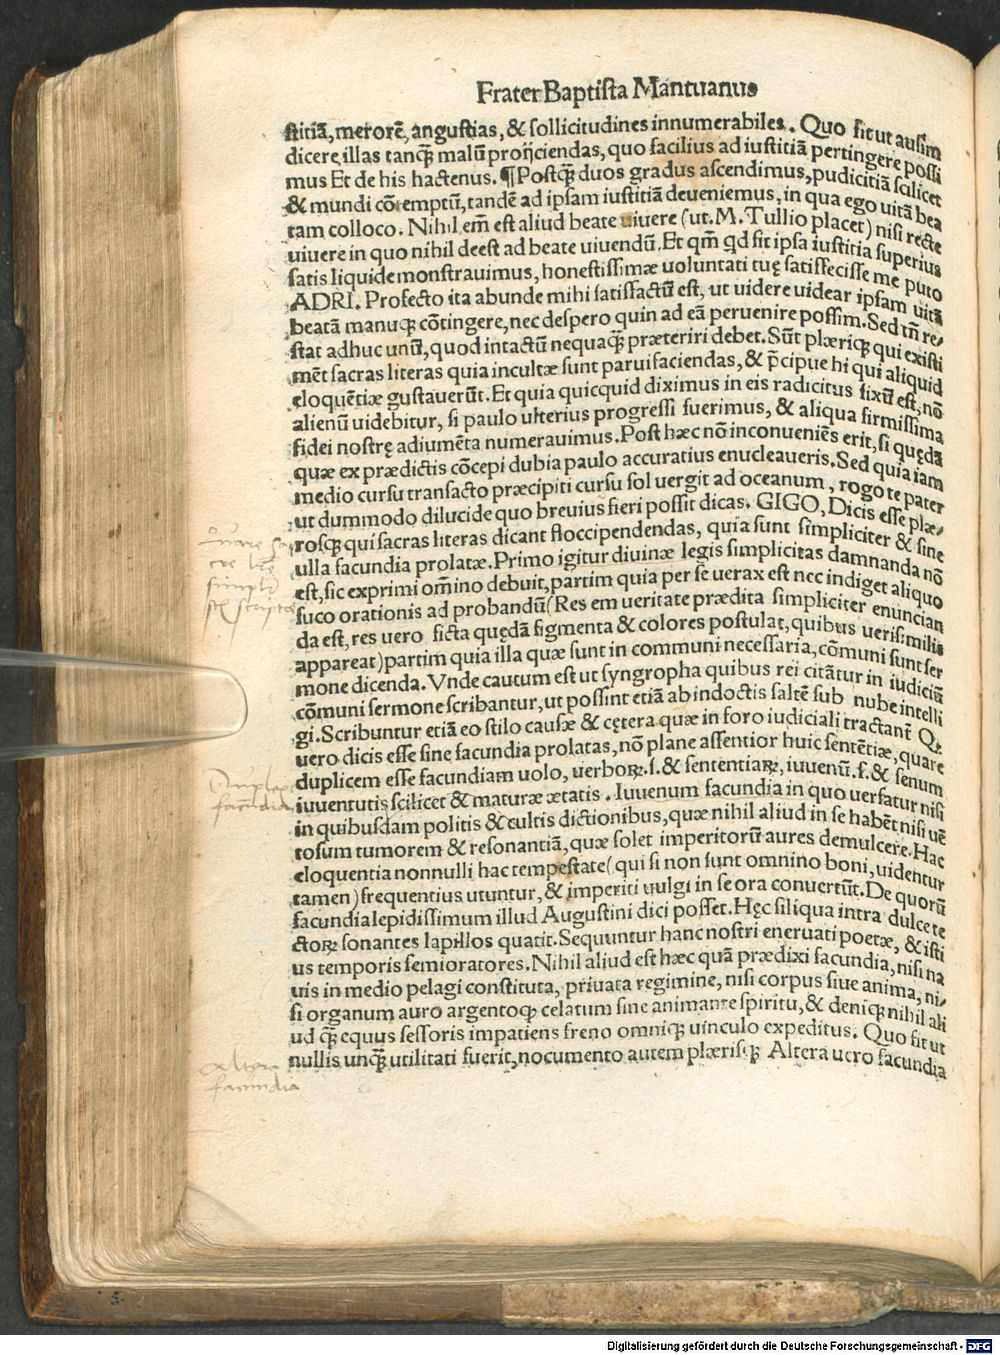 Frater Baptista Mantuanus
stitiã, merorẽ, angustias, & sollicitudines innumerabiles. Quo fit ut ausim
dicere illas tanq̃ malũ proijciendas, quo facilius ad iustitiã pertingere possi
mus Et de his hactenus. ¶Postq̃ duos gradus ascendimus, pudicitiã scilicet
& mundi cõtemptũ, tandẽ ad ipsam iustitiã deueniemus, in qua ego uitã bea
tam colloco. Nihil em̃ est aliud beate uiuere (ut. M. Tullio placet) nisi recte
uiuere in quo nihil deest ad beate uiuendũ. Et qm̃ qd sit ipsa iustitia superius
satis liquide monstrauimus, honestissimæ uoluntati tuę satisfecisse me puto
ADRI. Profecto ita abunde mihi satisfactũ est, ut uidere uidear ipsam uitã
beatã manuqꝫ cõtingere, nec despero quin ad eã peruenire possim. Sed tñ re-
stat adhuc unũ, quod intactũ nequaq̃ præteriri debet. Sũt plæriqꝫ qui existi
mẽt sacras literas quia incultæ sunt paruifaciendas, & p̃cipue hi qui aliquid
eloquẽtiæ gustauerũt. Et quia quicquid diximus in eis radicitus fixũ est, nõ
alienũ uidebitur, si paulo ulterius progressi fuerimus, & aliqua firmissima
fidei nostrę adiumẽta numerauimus. Post hæc nõ inconueniẽs erit, si quędã
quæ ex prædictis cõcepi dubia paulo accuratius enucleaueris. Sed quia iam
medio cursu transacto præcipiti cursu sol uergit ad oceanum, rogo te pater
ut dummodo dilucide quo breuius fieri possit dicas. GIGO, Dicis esse plæ-
rosqꝫ qui sacras literas dicant floccipendendas, quia sunt simpliciter & sine
ulla facundia prolatæ. Primo igitur diuinæ legis simplicitas damnanda nõ
est, sic exprimi om̃ino debuit, partim quia per se uerax est nec indiget aliquo
suco orationis ad probandũ (Res em ueritate prædita simpliciter enuncian
da est, res uero ficta quędã figmenta & colores postulat, quibus uerisimilis
appareat) partim quia illa quæ sunt in communi necessaria, cõmuni sunt ser
mone dicenda. Vnde cautum est ut syngropha quibus rei citãtur in iudiciũ
cõmuni sermone scribantur, ut possint etiã ab indoctis saltẽ sub nube intelli
gi. Scribuntur etiã eo stilo causæ & cętera quæ in foro iudiciali tractant̃ Qꝫ
uero dicis esse sine facundia prolatas, nõ plane assentior huic sentẽtiæ, quare
duplicem esse facundiam uolo, uerboꝝ. s. & sententiaꝝ, iuuenũ. s. & senum
iuuentutis scilicet & maturæ ætatis. Iuuenum facundia in quo uersatur nisi
in quibusdam politis & cultis dictionibus, quæ nihil aliud in se habẽt nisi uẽ
tosum tumorem & resonantiã, quæ solet imperitorũ aures demulcere. Hac
eloquentia nonnulli hac tempestate (qui si non sunt omnino boni, uidentur
tamen) frequentius utuntur, & imperiti uulgi in se ora conuertũt. De quorũ
facundia lepidissimum illud Augustini dici posset. Hęc siliqua intra dulce te
ctoꝝ sonantes lapillos quatit. Sequuntur hanc nostri eneruati poetæ, & isti
us temporis semioratores. Nihil aliud est hæc quã prædixi facundia, nisi na
uis in medio pelagi constituta, priuata regimine, nisi corpus siue anima, ni-
si organum auro argentoqꝫ celatum sine animante spiritu, & deniqꝫ nihil ali
ud q̃ equus sessoris impatiens freno omniqꝫ uinculo expeditus. Quo fit ut
nullis unq̃ utilitati fuerit, nocumento autem plærisqꝫ Altera uero facundia
Duplex
facundia
Altera
facundia
Digitalisierung gefördert durch die Deutsche Forschungsgemeinschaft - DFG